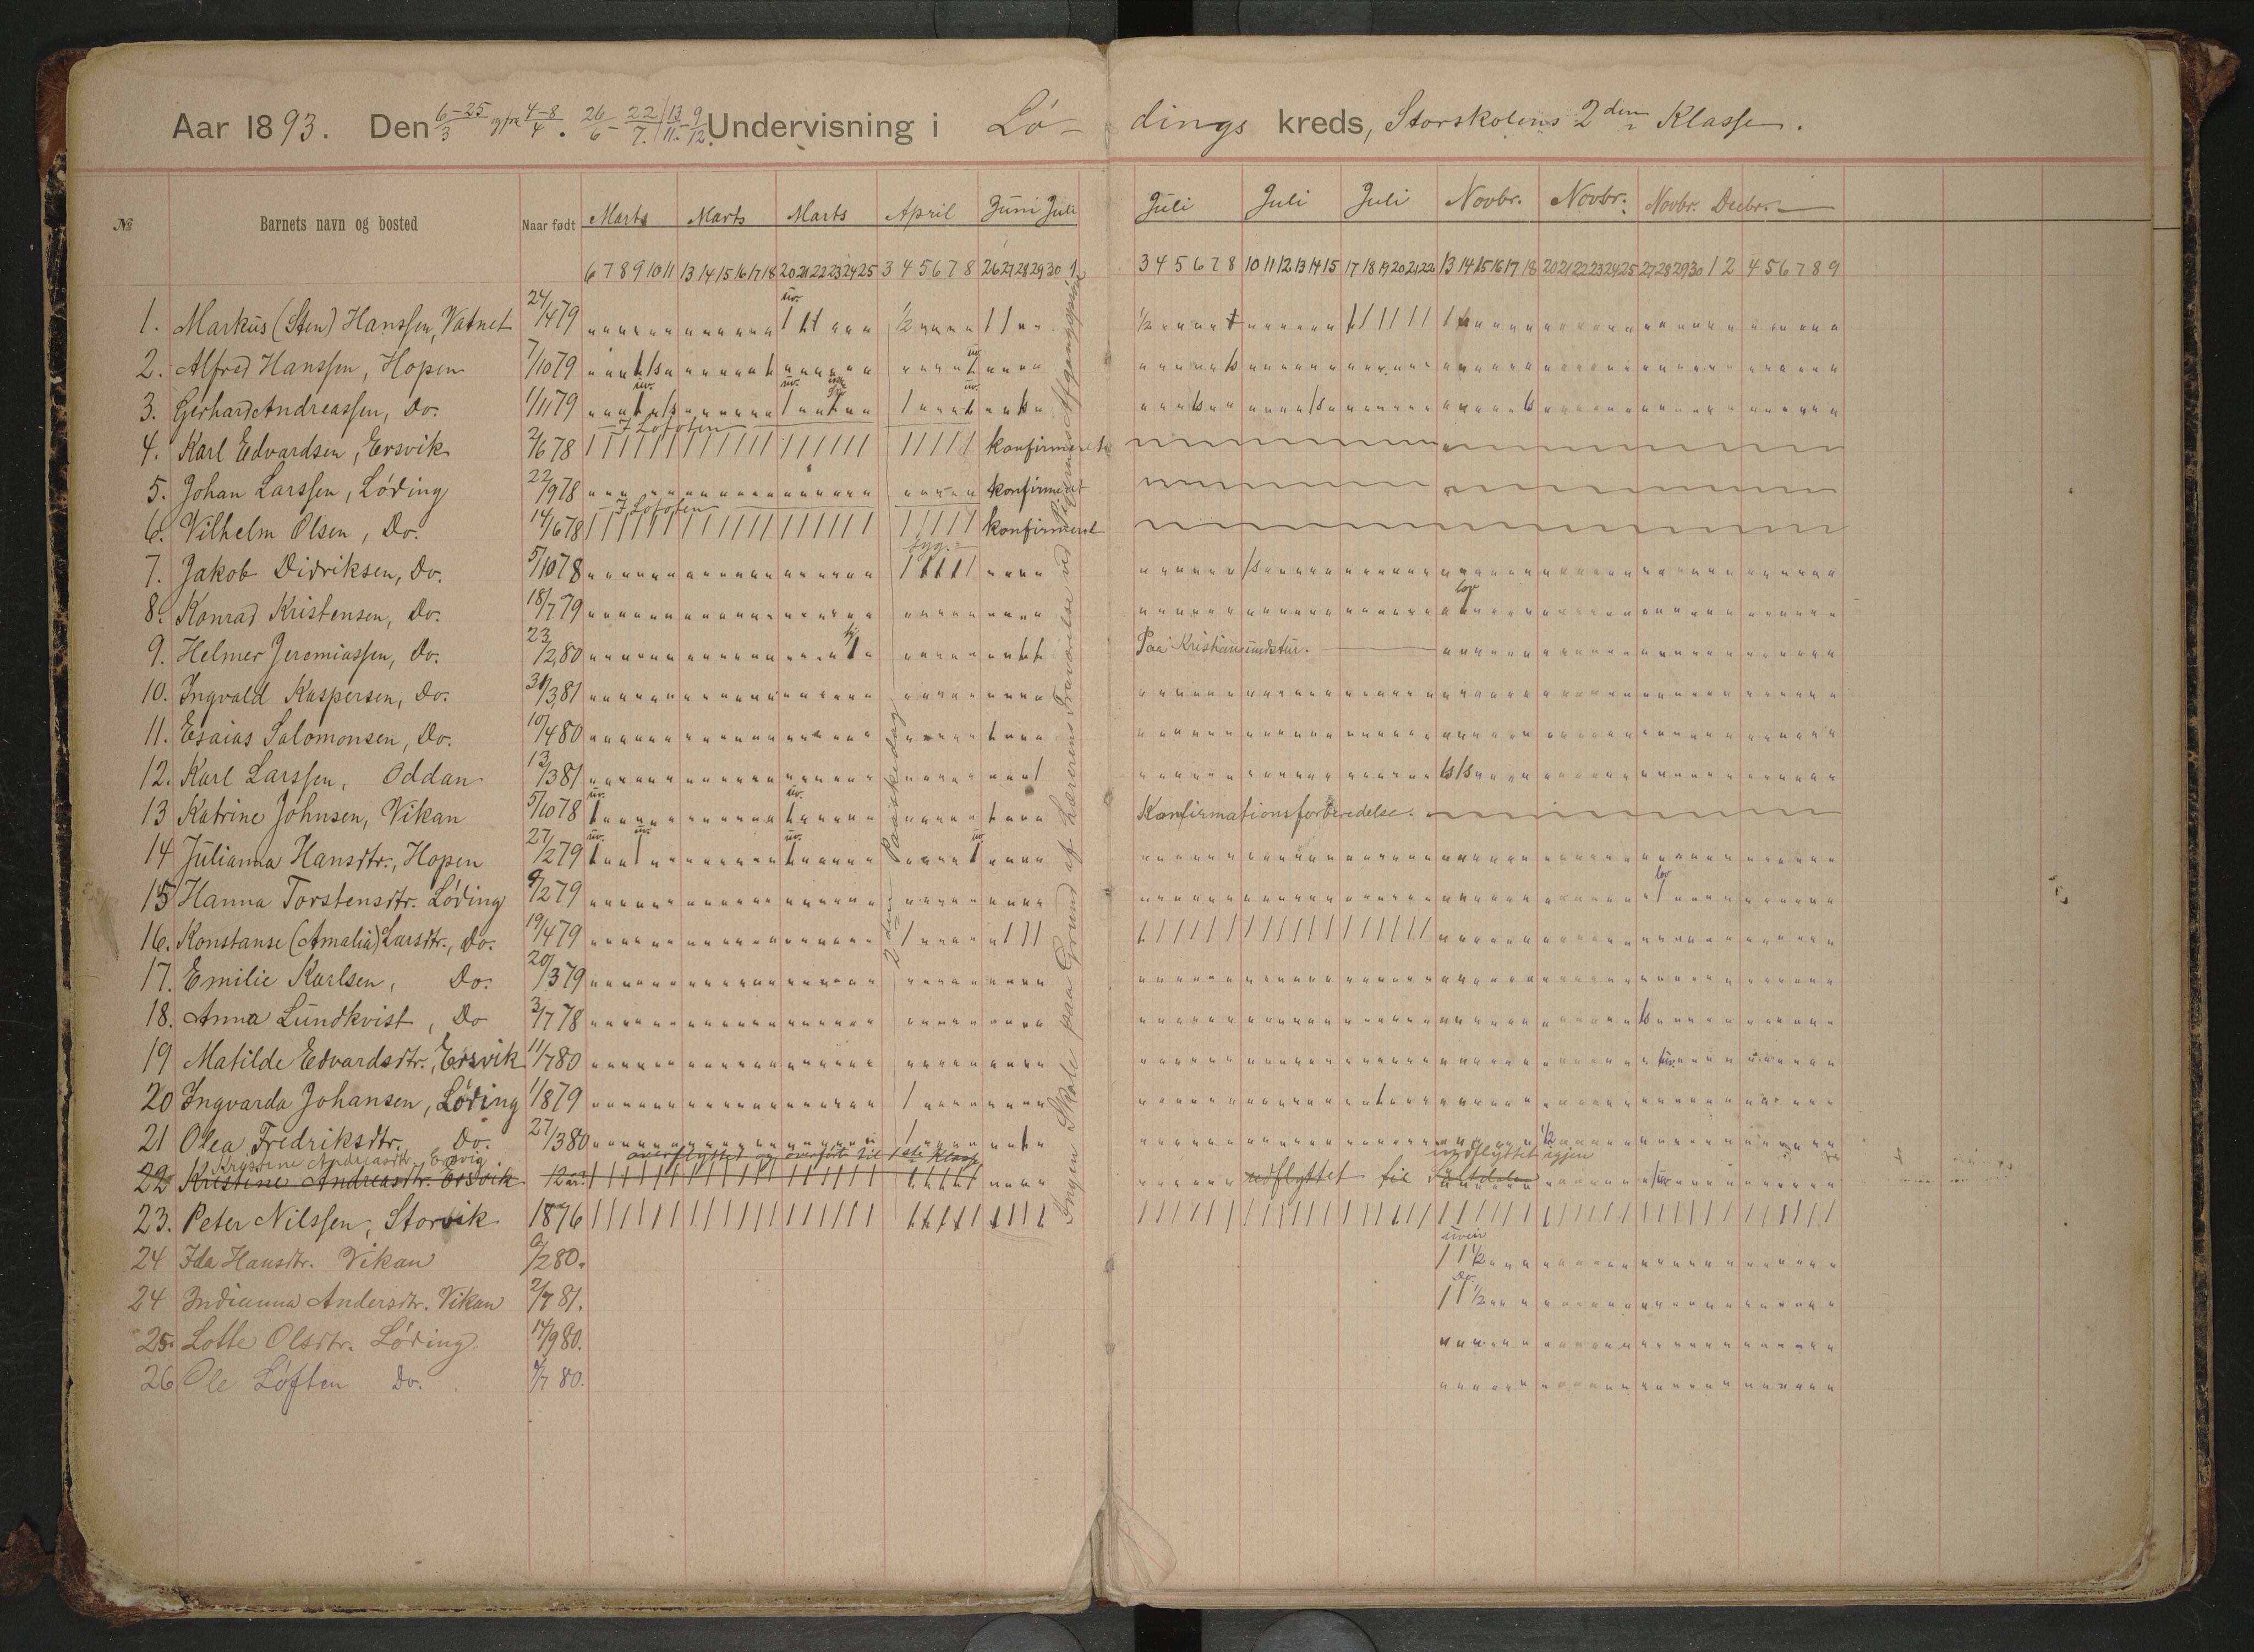 Aar 1893. Den 6-25/3 og fra 4-8/4. 26/6 - 22/7. 13/11 - 9/12. Undervisning i Lö- dings kreds, Storskolens 2den Klasse.
№ Barnets navn og bosted Naar født Marts Marts Marts April Juni Juli Juli Juli Juli Novbr. Novbr. Novbr. Decbr.
6 7 8 9 10 11 13 14 15 16 17 18 20 21 22 23 24 25 3 4 5 6 7 8 26 27 28 29 30 1 3 4 5 6 7 8 10 11 12 13 14 15 17 18 19 20 21 22 13 14 15 16 17 18 20 21 22 23 24 25 27 28 29 30 1 2 4 5 6 7 8 9
uv.
1. Markus (Sten) Hanssen, Vatnet 24/4 79 1/2 1/2
2. Alfred Hanssen, Hopen 7/10 79 uv.
3. Gerhard Andreassen, Do. 1/11 79 uv. uv. uv.
I Lofoten
4. Karl Edvardsen, Ersvik 2/6 78 konfirmeret
5. Johan Larssen, Löding 22/9 78 konfirmeret
I Lofoten
6. Vilhelm Olsen, Do. 14/6 78 konfirmeret
syg.
7. Jakob Didriksen, Do. 5/10 78
8. Konrad Kristensen, Do. 18/7 79 lov
9. Helmer Jeremiassen, Do. 23/2 80 Paa Kristiansundstur.
10. Ingvald Kaspersen, Do. 31/3 81
11. Esaias Salomonsen, Do. 10/4 80
12. Karl Larssen, Oddan 13/3 81
13 Katrine Johnsen, Vikan 5/10 78 uv. uv. Konfirmationsforberedelse.
14 Julianna Hansdtr., Hopen 27/2 79 uv. uv. uv. uv
15 Hanna Torstensdtr. Löding 9/2 79 lov
16. Konstanse (Amalia) Larsdtr., Do. 19/4 79
17. Emilie Karlsen, Do. 20/3 79
18. Anna Lundkvist, Do 3/7 78
19 Matilde Edvardsdtr., Ersvik 11/7 80
20 Ingvarda Johansen, Löding 1/8 79
21 Olea Fredriksdtr. Do. 27/3 80 1/2
Kristine Andreasdtr. Ersvig overflyttet og overført til 1ste Klasse indflyttet igjen
22 Kristine Andreasdtr. Ersvik 12 aar. udflyttet til Saltdalen
23. Peter Nilssen, Storvik 1876
24 Ida Hansdtr. Vikan 9/2 80. uveir 1/2
24 Indianna Andersdtr. Vikan 2/7 81. Do. 1/2
25. Lotte Olsdtr. Löding. 14/9 80.
26 Ole Löften Do. 9/7 80.
2den Paaskedag
Ingen Skole paa Grund af Lærerens Fraværelse ved Afgangsprøve